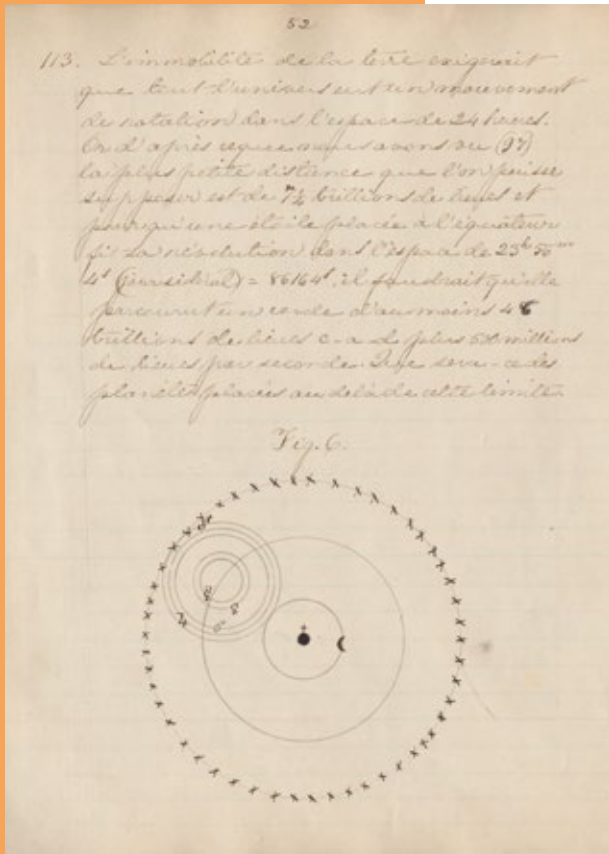 52
113. L'immobilité de la terre exigerait
que tout l'univers eut un mouvement
de rotation dans l'espace de 24 heures.
Or d'après ce que nous avons vu (17)
la plus petite distance que l'on puisse
supposer est de 7½ trillions de lieues et
pour qu'une étoile placée à l'équateur
fit sa révolution dans l'espace de 23h 56m
4s (jour sidéral) = 86164s, il faudrait qu'elle
parcourut un cercle d'au moins 46
trillions de lieues c. a d. plus 500 millions
de lieues par seconde. Que sera-ce des
planètes placées au delà de cette limite
Fig. 6.